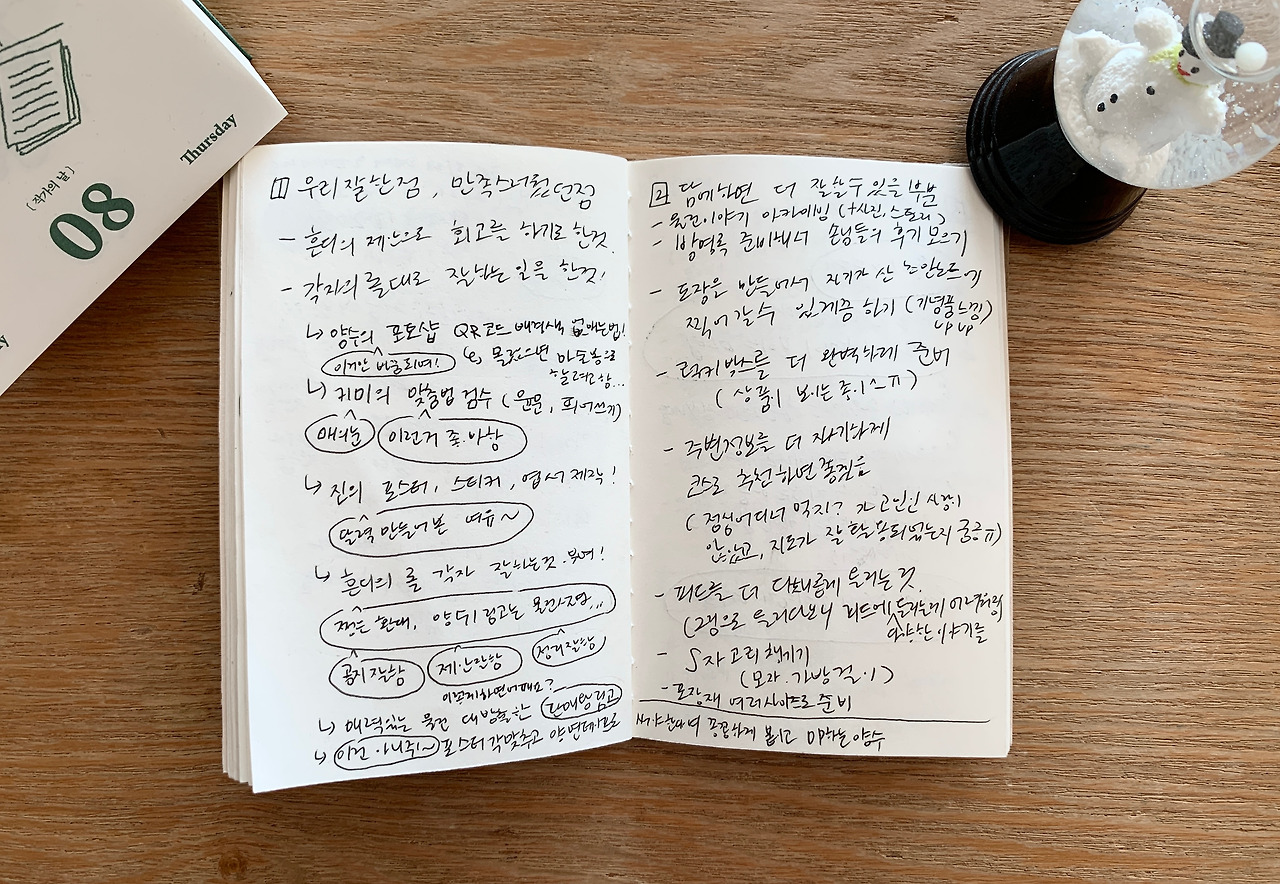 [작가의 날]
08
Thursday
1 우리 잘한점, 만족스러웠던점
- 흔디의 제안으로 회고를 하기로 한것
- 각자의 롤대로 잘하는 일을 한것!
↳ 양수의 포토샵 QR코드 배경색 없애는법!
이거만 바글리며! ↳ 몰랐으면 마스킹으로
할려고함...
↳ 키미의 맞춤법 검수 (원문, 띄어쓰기)
매의눈 이런거 좋아함
↳ 진의 포스터, 스티커, 엽서 제작!
달력 만들어본 여유~
↳ 흔디의 롤 각자 잘하는것 부여!
진은 환대, 양수 키고는 물건자랑...
공지 잘함 제안 잘함 정리잘함
이렇게하면어때요?
↳ 매력있는 물건 대방출한 판매왕 킴고
↳ 이건 아니쥐~ 포스터 각맞추고 양면테이프로
2 담에하면 더 잘할수 있을 부분
- 물건이야기 아카이빙 (+사진, 스토리)
- 방명록 준비해서 손님들의 후기 모으기
- 도장은 만들어서 자기가 산 노안노트에
찍어갈수 있게끔 하기 (기념품느낌)
up up
- 럭키박스를 더 완벽하게 준비
(상품이 보이는 종이ㅅㅠ)
- 주변정보를 더 자세하게
코스로 추천하면 좋겠음
(점심어디서 먹지? 가 고민인 사람이
않았고, 지도가 잘 활용되었는지 궁금ㅠ)
- 피드를 더 다채롭게 올리는것.
(2명으로 올리다보니 피드에 올리는게 어려워짐
다양한 이야기를
- S자고리 챙기기
(모자·가방걸이)
- 포장재 여러사이즈로 준비
꼼꼼하게 붙이고 마하는 양수